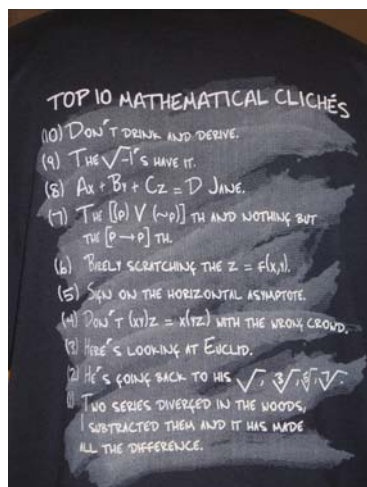 TOP 10 MATHEMATICAL CLICHÉS
(10) DON'T DRINK AND DERIVE.
(9) THE √-1'S HAVE IT.
(8) Ax + By + Cz = D JANE.
(7) THE [(p) V (~p)] TH AND NOTHING BUT
THE [p → p] TH.
(6) BARELY SCRATCHING THE z = f(x,y).
(5) SIGN ON THE HORIZONTAL ASYMPTOTE.
(4) DON'T (xy)z = x(yz) WITH THE WRONG CROWD.
(3) HERE'S LOOKING AT EUCLID.
(2) HE'S GOING BACK TO HIS √, ∛,
(1) TWO SERIES DIVERGED IN THE WOODS,
I SUBTRACTED THEM AND IT HAS MADE
ALL THE DIFFERENCE.